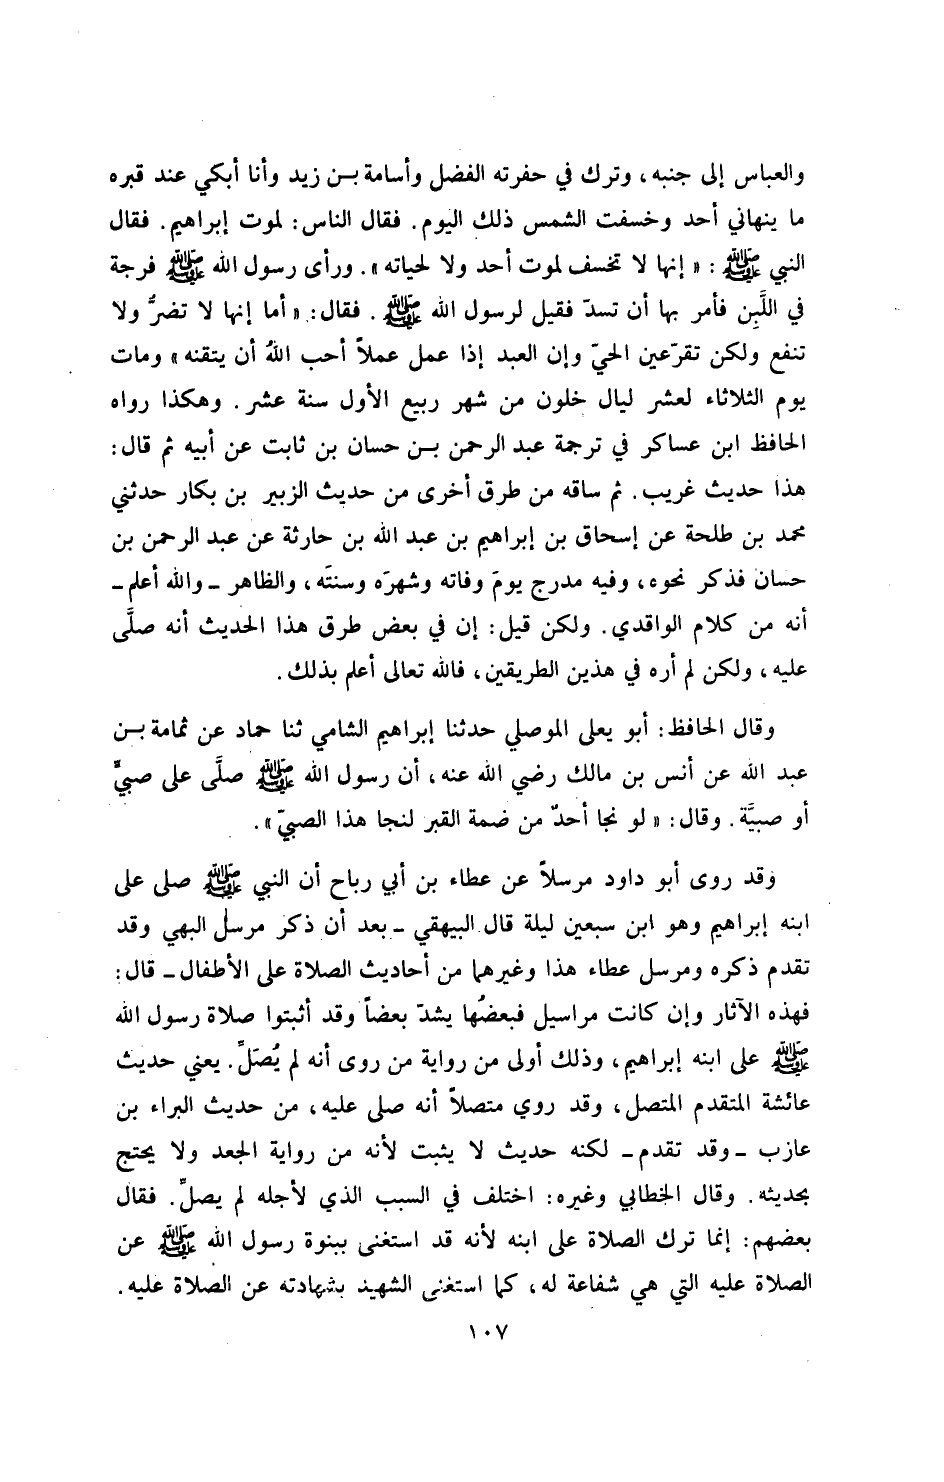 والعباس إلى جنبه، وترك في حفرته الفضل وأسامة بن زيد وأنا أبكي عند قبره
ما ينهاني أحد وخسفت الشمس ذلك اليوم. فقال الناس: لموت إبراهيم. فقال
النبي ﷺ: «إنها لا تخسف لموت أحد ولا لحياته». ورأى رسول الله ﷺ فرجة
في اللَّبِن فأمر بها أن تسدّ فقيل لرسول الله ﷺ. فقال: «أما إنها لا تضرُّ ولا
تنفع ولكن تقرّ عين الحيّ وإن العبد إذا عمل عملاً أحب اللهُ أن يتقنه» ومات
يوم الثلاثاء لعشر ليال خلون من شهر ربيع الأول سنة عشر. وهكذا رواه
الحافظ ابن عساكر في ترجمة عبد الرحمن بن حسان بن ثابت عن أبيه ثم قال:
هذا حديث غريب. ثم ساقه من طرق أخرى من حديث الزبير بن بكار حدثني
محمد بن طلحة عن إسحاق بن إبراهيم بن عبد الله بن حارثة عن عبد الرحمن بن
حسان فذكر نحوه، وفيه مدرج يومَ وفاته وشهرَه وسنتَه، والظاهر ـ والله أعلم ـ
أنه من كلام الواقدي. ولكن قيل: إن في بعض طرق هذا الحديث أنه صلَّى
عليه، ولكن لم أره في هذين الطريقين، فالله تعالى أعلم بذلك.
وقال الحافظ: أبو يعلى الموصلي حدثنا إبراهيم الشامي ثنا حماد عن ثمامة بن
عبد الله عن أنس بن مالك رضي الله عنه، أن رسول الله ﷺ صلَّى على صبيٍّ
أو صبيَّة. وقال: «لو نجا أحدٌ من ضمة القبر لنجا هذا الصبيّ».
وقد روى أبو داود مرسلاً عن عطاء بن أبي رباح أن النبي ﷺ صلى على
ابنه إبراهيم وهو ابن سبعين ليلة قال البيهقي ـ بعد أن ذكر مرسل البهي وقد
تقدم ذكره ومرسل عطاء هذا وغيرهما من أحاديث الصلاة على الأطفال ـ قال:
فهذه الآثار وإن كانت مراسيل فبعضُها يشدّ بعضاً وقد أثبتوا صلاة رسول الله
ﷺ على ابنه إبراهيم، وذلك أولى من رواية من روى أنه لم يُصَلِّ. يعني حديث
عائشة المتقدم المتصل، وقد روي متصلاً أنه صلى عليه، من حديث البراء بن
عازب ـ وقد تقدم ـ لكنه حديث لا يثبت لأنه من رواية الجعد ولا يحتج
بحديثه. وقال الخطابي وغيره: اختلف في السبب الذي لأجله لم يصلِّ. فقال
بعضهم: إنما ترك الصلاة على ابنه لأنه قد استغنى ببنوة رسول الله ﷺ عن
الصلاة عليه التي هي شفاعة له، كما استغنى الشهيد بشهادته عن الصلاة عليه.
١٠٧